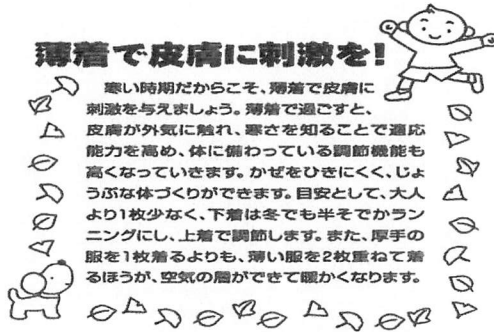 薄着で皮膚に刺激を!
寒い時期だからこそ、薄着で皮膚に
刺激を与えましょう。薄着で過ごすと、
皮膚が外気に触れ、寒さを知ることで適応
能力を高め、体に備わっている調節機能も
高くなっていきます。かぜをひきにくく、じょ
うぶな体づくりができます。目安として、大人
より1枚少なく、下着は冬でも半そでかラン
ニングにし、上着で調節します。また、厚手の
服を1枚着るよりも、薄い服を2枚重ねて着
るほうが、空気の層ができて暖かくなります。